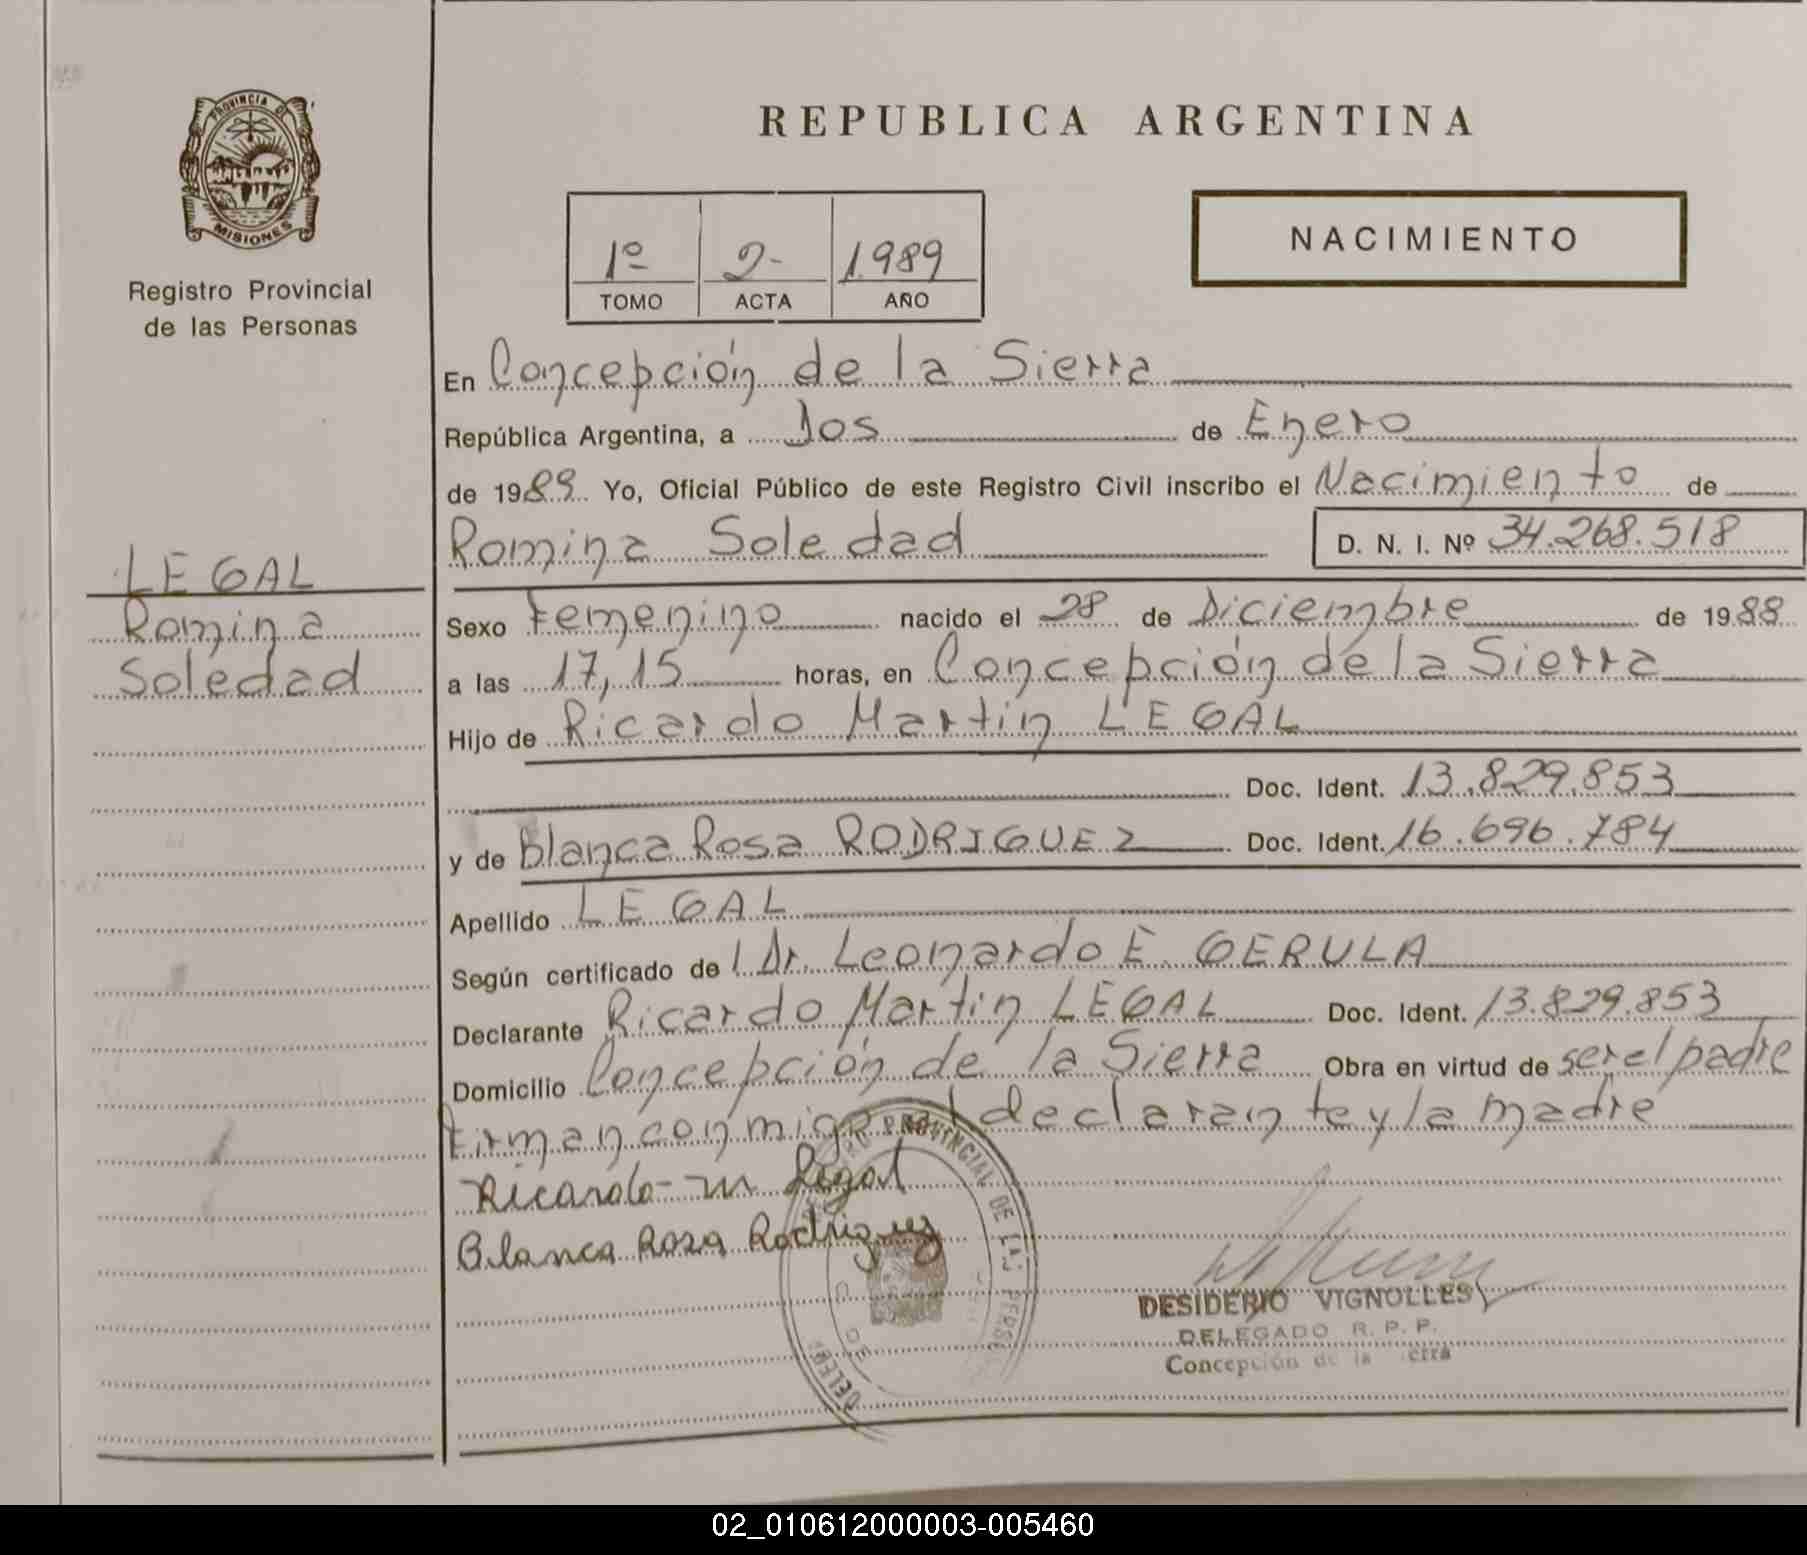 PROVINCIA DE
MISIONES
Registro Provincial
de las Personas
LEGAL
Romina
Soledad
REPUBLICA ARGENTINA
1º 2- 1989
TOMO ACTA AÑO
NACIMIENTO
En Concepción de la Sierra
República Argentina, a Dos de Enero
de 1989 Yo, Oficial Público de este Registro Civil inscribo el Nacimiento de
Romina Soledad D. N. I. Nº 34.268.518
Sexo Femenino nacido el 28 de Diciembre de 1988
a las 17,15 horas, en Concepción de la Sierra
Hijo de Ricardo Martín LEGAL
Doc. Ident. 13.829.853
y de Blanca Rosa RODRIGUEZ Doc. Ident. 16.696.784
Apellido LEGAL
Según certificado de l Dr. Leonardo E. GERULA
Declarante Ricardo Martín LEGAL Doc. Ident. 13.829.853
Domicilio Concepción de la Sierra Obra en virtud de ser el padre
Firman conmigo el declarante y la madre
Ricardo M Legal
Blanca Rosa Rodriguez
PROVINCIAL DE LAS
DESIDERIO VIGNOLLES
DELEGADO R. P. P.
Concepción de la
02_010612000003-005460